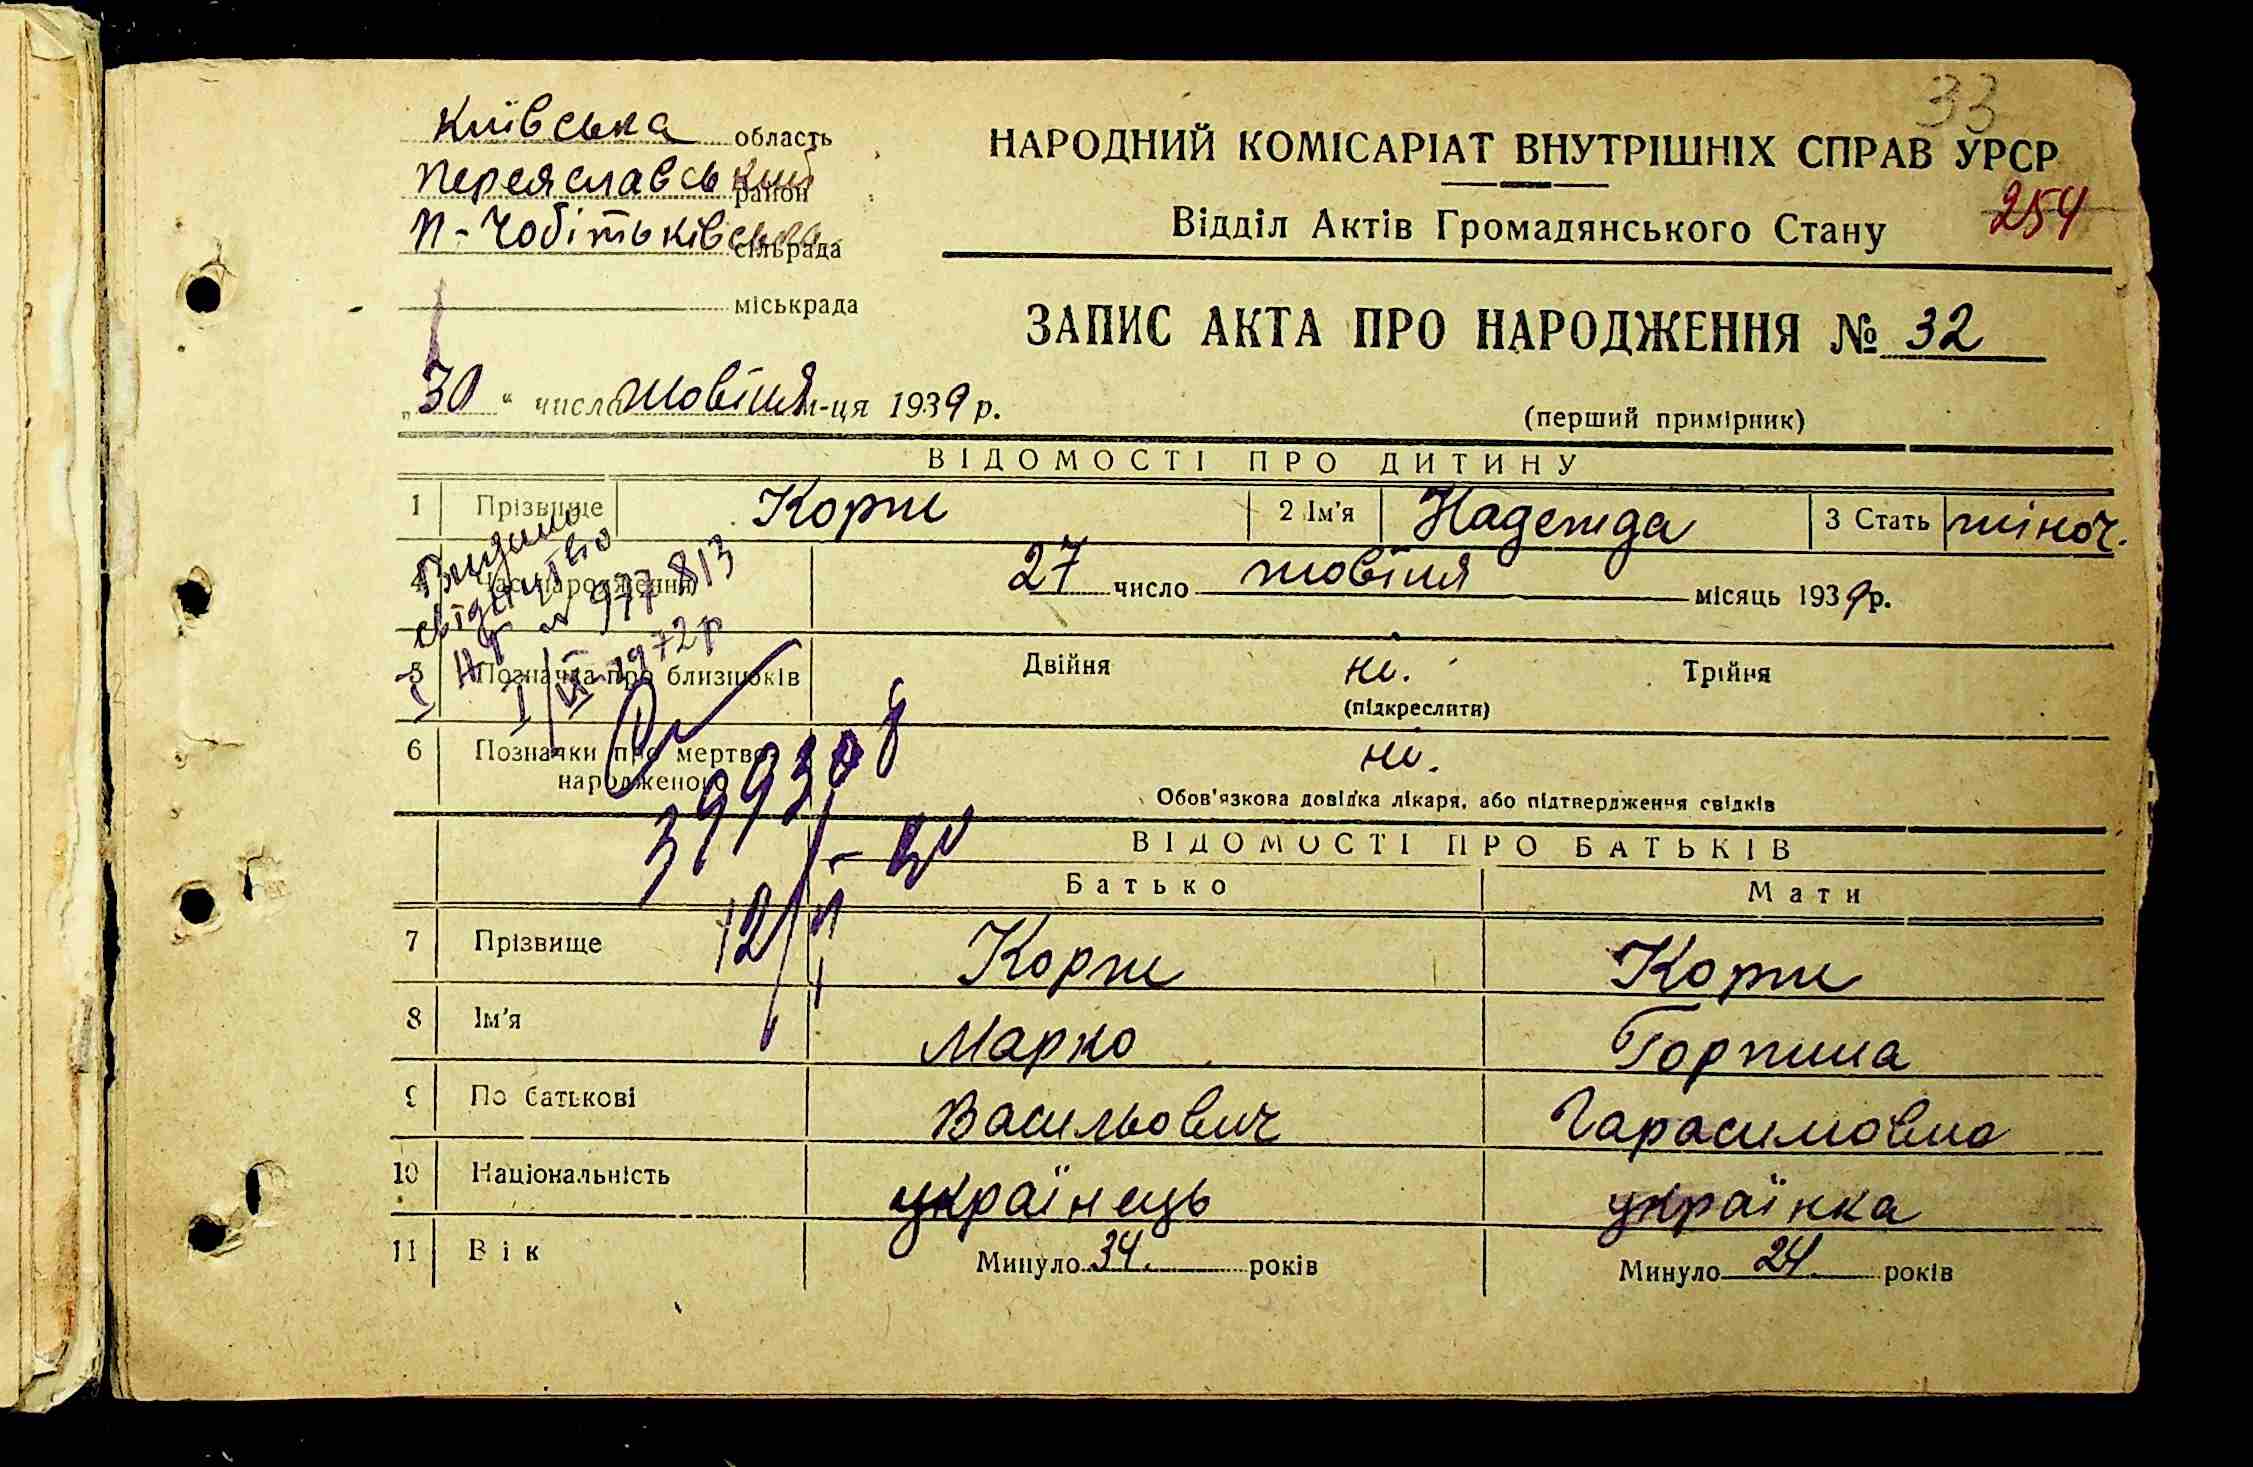 33
Київська область
Переяславський район
П-Чобітьківська сільрада
міськрада
НАРОДНИЙ КОМІСАРІАТ ВНУТРІШНІХ СПРАВ УРСР
254
Відділ Актів Громадянського Стану
ЗАПИС АКТА ПРО НАРОДЖЕННЯ № 32
„30" числа жовтня м-ця 1939 р.
(перший примірник)
ВІДОМОСТІ ПРО ДИТИНУ
1 Прізвище Корж 2 Ім'я Надежда 3 Стать жіноч.
4 Час народження 27 число жовтня місяць 1939 р.
Видано
свідоцтво
977813
1972р
5 Позначка про близнюків Двійня ні. Трійня
(підкреслити)
6 Позначки про мертво-
народженого ні.
Обов'язкова довідка лікаря, або підтвердження свідків
ВІДОМОСТІ ПРО БАТЬКІВ
Батько Мати
7 Прізвище Корж Корж
8 Ім'я Марко Горпина
9 По батькові Васильович Гарасимовна
10 Національність українець українка
11 Вік Минуло 34. років Минуло 24. років